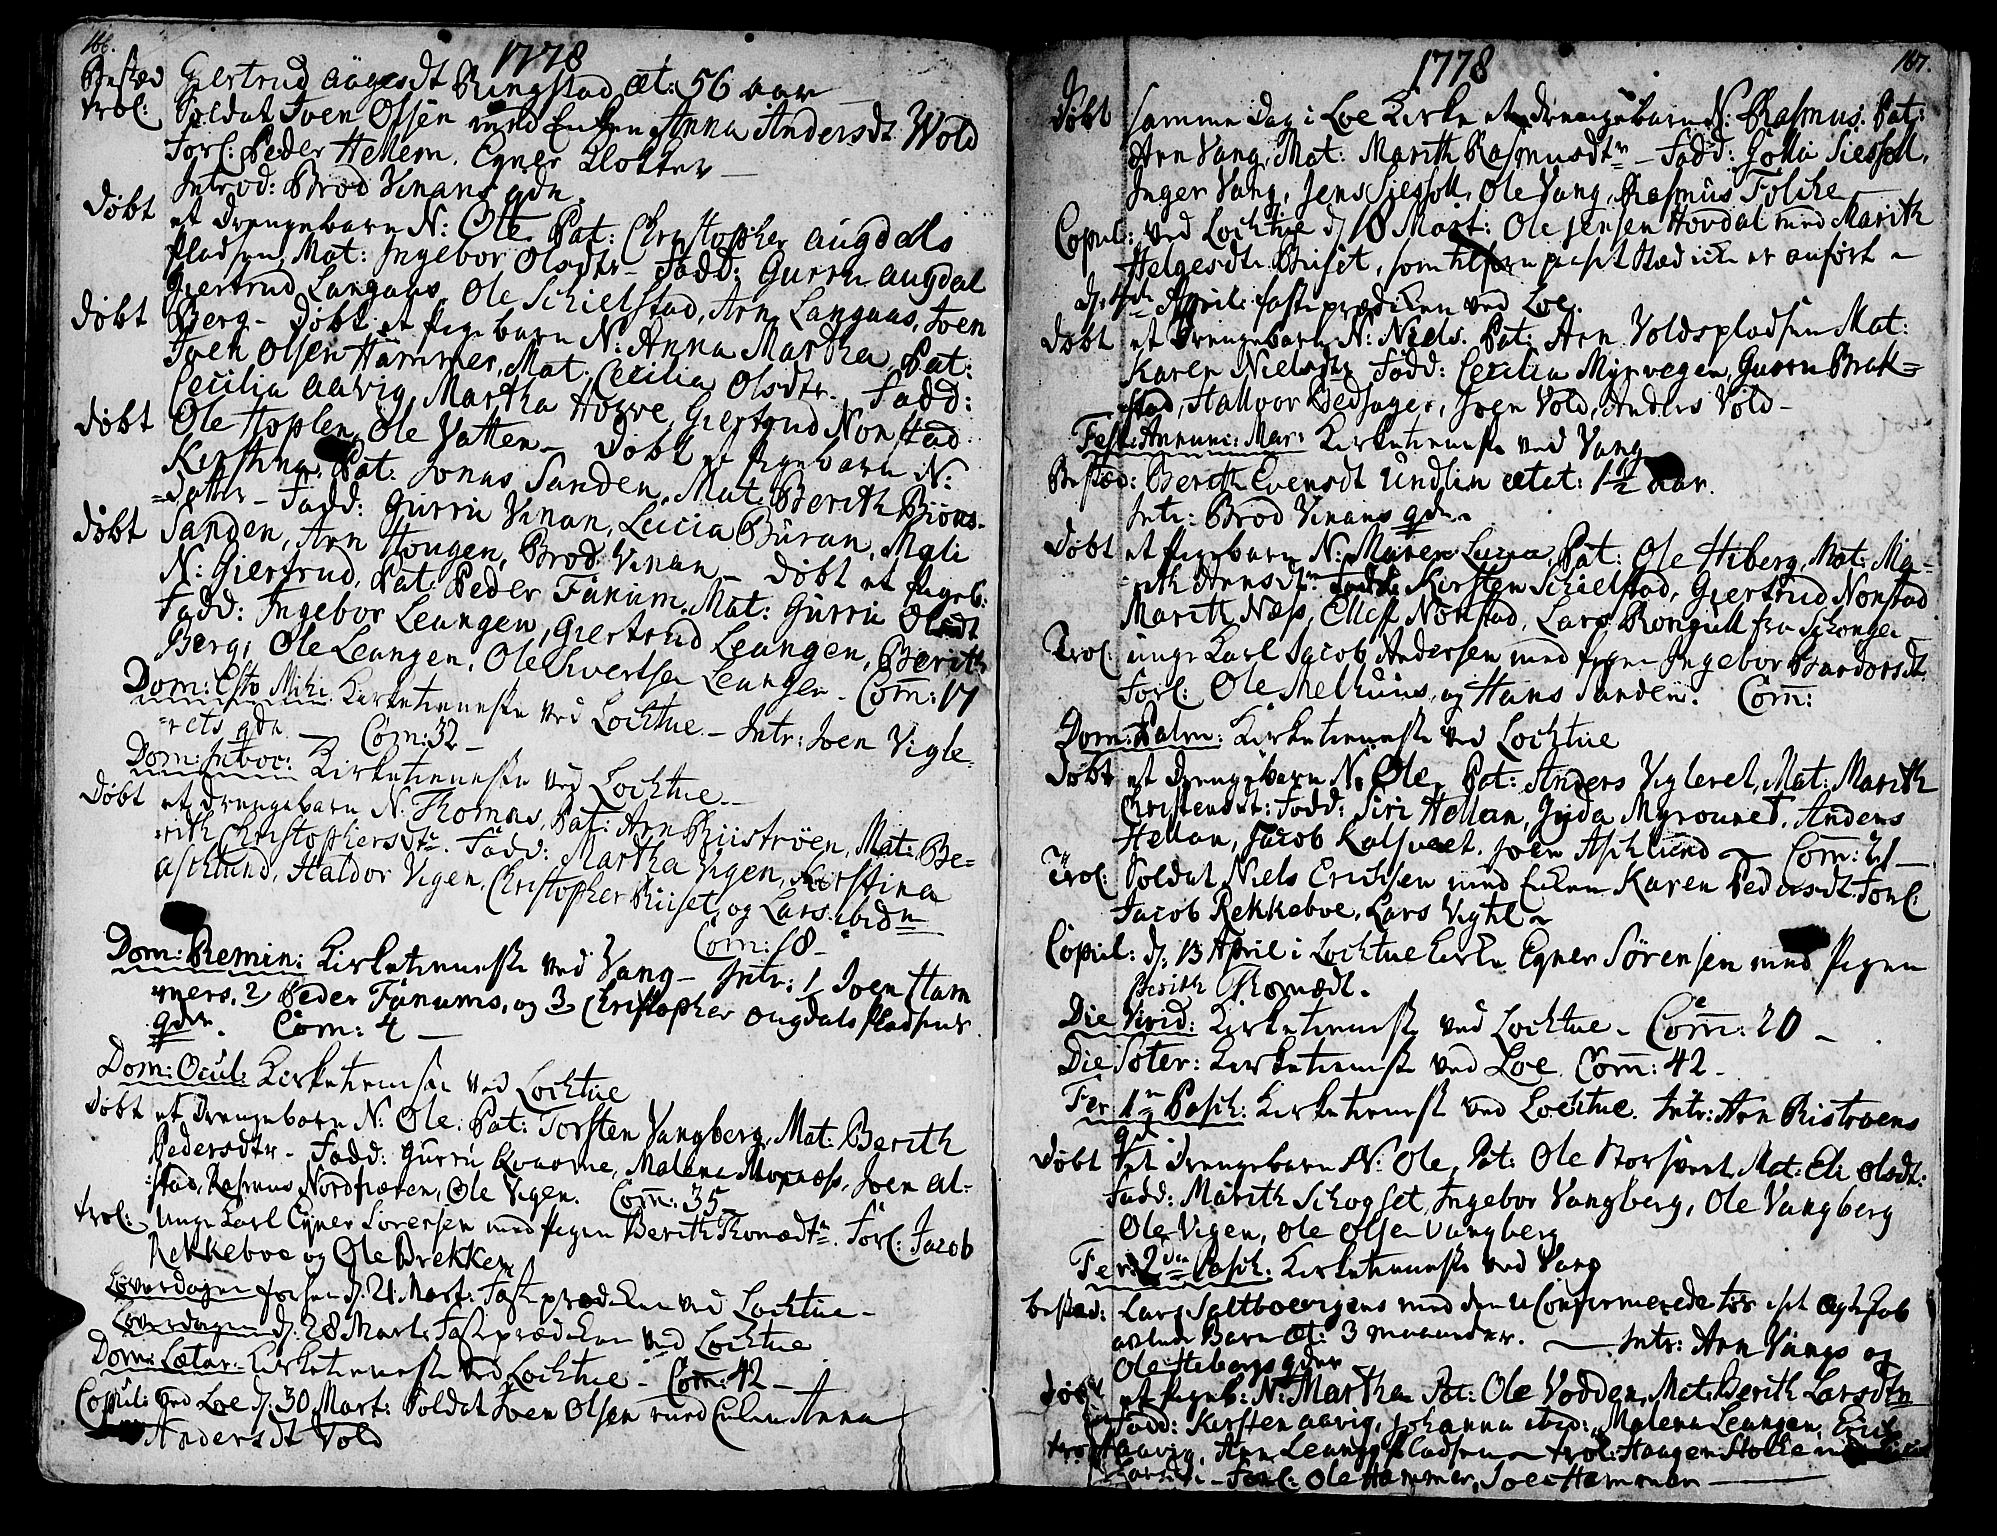 166.
1778
Bested Giertrud Aagesdt Ringstad æt: 56 aar
trol: Soldat Joen Olsen med Enken Anna Andersdt Wold
Forl: Peder Hellem. Egner Klokker
Introd: Brod Vinans qdn.
døbt et drengebarn N: Ole. Pat: Christopher augdals
Pladsen, Mat: Ingebor Olsdtr - Fadd: Gurru augdal
Giertrud Langaas, Ole Schielstad, Arn Langaas, Joen
døbt Berg - døbt et Pigebarn N: Anna Martha, Pat:
Joen Olsen Hammer, Mat: Cecilia Olsdtr. Fadd:
Cecilia aavig, Martha Hovve, Giertrud Nonstad
døbt Ole Hoplen, Ole Vatten - døbt et Pigebarn N:
Kirstina, Pat: Jonas Sanden, Mat: Berith Biøns-
=datter - Fadd: Gurru Vinan, Lucia Buran, Mali
døbt Sanden, Arn Hougen, Brod: Vinan - døbt et Pigeb:
N: Giertrud, Pat: Peder Fanum, Mat: Gurru Olsdt
Fadd: Ingebor Leangen, Giertrud Leangen, Berith
Berg, Ole Leangen, Ole Sivertsen Leangen - Com: 17
Dom: Esto Mihi Kirketienneste ved Lochtue - Intr: Joen Vigle-
=rets qdn. - Com: 32 -
Dom: Invoc: Kirketienneste ved Lochtue -
døbt et drengebarn N: Thomas, Pat: Arn Riistrøen, Mat: Be=
=rith Christophersdtr. Fadd: Martha Vigen, Kirstina
aschlund, Haldor Vigen, Christopher Riiset, og Lars ibidn
Com: 18 -
Dom: Remin: Kirketienneste ved Vang - Intr: 1 Joen Ham
mers, 2 Peder Fanums, og 3 Christopher ougdals Pladsens
qdr. Com: 4 -
Dom: Ocul: Kirketieneste ved Lochtue
døbt et drengebarn N: Ole: Pat: Torsten Vangberg, Mat: Berith
Pedersdtr - Fadd: Gurru Qvaarne, Malena Moxnæss, Joen al-
=stad, Rasmus Nordfiæren, Ole Vigen. Com: 35
trol: Unge Karl Egner Sørensen med Pigen Berith Thomædtr. Forl: Jacob
Rekkeboe og Ole Brekken
Løverdagen d: 21 Mart: Fasteprædiken ved Lochtue -
Løverdagen d: 28 Mart: Fasteprædiken ved Lochtue
Dom: Lætar: Kirketienneste ved Lochtue - Com: 42 -
Copul: ved Loe d: 30 Mart: Soldat Joen Olsen med Enken Anna
Andersdt Vold
167.
1778
døbt samme dag i Loe Kirke et drengebarn N: Rasmus. Pat:
Arn Vang, Mat: Marith Rasmusdtr - Fadd: Golla Siessoll,
Inger Vang, Jens Siessoll, Ole Vang, Rasmus Folche
Copul: ved Lochtue d: 18 Mart: Ole Jensen Hovdal med Marith
Helgesdt Buset, som tilforn paa sit stæd icke er anført -
d: 4de April: fasteprædiken ved Loe.
døbt et Drengebarn N: Niels. Pat: Arn Voldspladsen Mat:
Karen Nielsdtr Fadd: Cecilia Myrvegen, Gurru Brak=
stad, Halvor Bedsager, Joen Vold, Anders Vold -
Fest: Annunc: Mar: Kirketienneste ved Vang
Bestæd: Berith Evensdt Undlin ætat: 1 1/2 aar.
Intr: Brod Vinans qdr.
døbt et Pigebarn N: Maren Lucia, Pat: Ole Hiberg, Mat: Ma-
=rith Arnsdtr Fadd: Kirsten Schielstad, Giertrud Nonstad
Marith Næss, Ellef Nonstad, Lars Rongull fra Schonge -
Trol: unge Karl Jacob Andersen med Pigen Ingebor Baardsdt
Forl: Ole Melhuus, og Hans Sanden. Com:
Dom: Palm: Kirketienneste ved Lochtue
døbt et drengebarn N: Ole, Pat: Anders Vigleret, Mat: Marith
Christensdt: Fadd: Siri Hellan, Gida Myrouned, Anders
Hellan, Jacob Kalsveet, Joen Aschlund - Com: 21 -
Trol: Soldat Niels Erichsen med Enken Karen Pedersdt. Forl:
Jacob Rekkeboe, Lars Vigtel -
Copul: d: 13 April i Lochtue Kirke Egner Sørensen med Pigen
Berith Thomædt.
Die Virid: Kirketienneste ved Lochtue - Com: 20 -
Die Soter: Kirketienneste ved Loe Com: 42 -
Fer 1a Pasch: Kirketienneste ved Lochtue. Intr: Arn Ristroens
qd
døbt et Drengebarn N: Ole, Pat: Ole Storsveet, Mat: Eli Olsdt:
Fadd: Marith Schogset, Ingebor Vangberg, Ole Vangberg
Ole Vigen, Ole Olsen Vangberg
Fer: 2da Pasch: Kirketienneste ved Vang
bestæd: Lars Saltboevigens med den uConfirmerede
avlede Barn æt: 3 maaneder. - Intr: Arn Vangs og
Ole Hibergs qdr
døbt et Pigeb: N: Martha Pat: Ole Vodden, Mat: Berith Larsdtr
Fadd: Kirsten aavig, Johanna ibid: Malena Leangen, Erich
aavig, Arn Leangspladsen - trol: Haagen Stokke
Forl: Ole Hammer, Joen Hammer